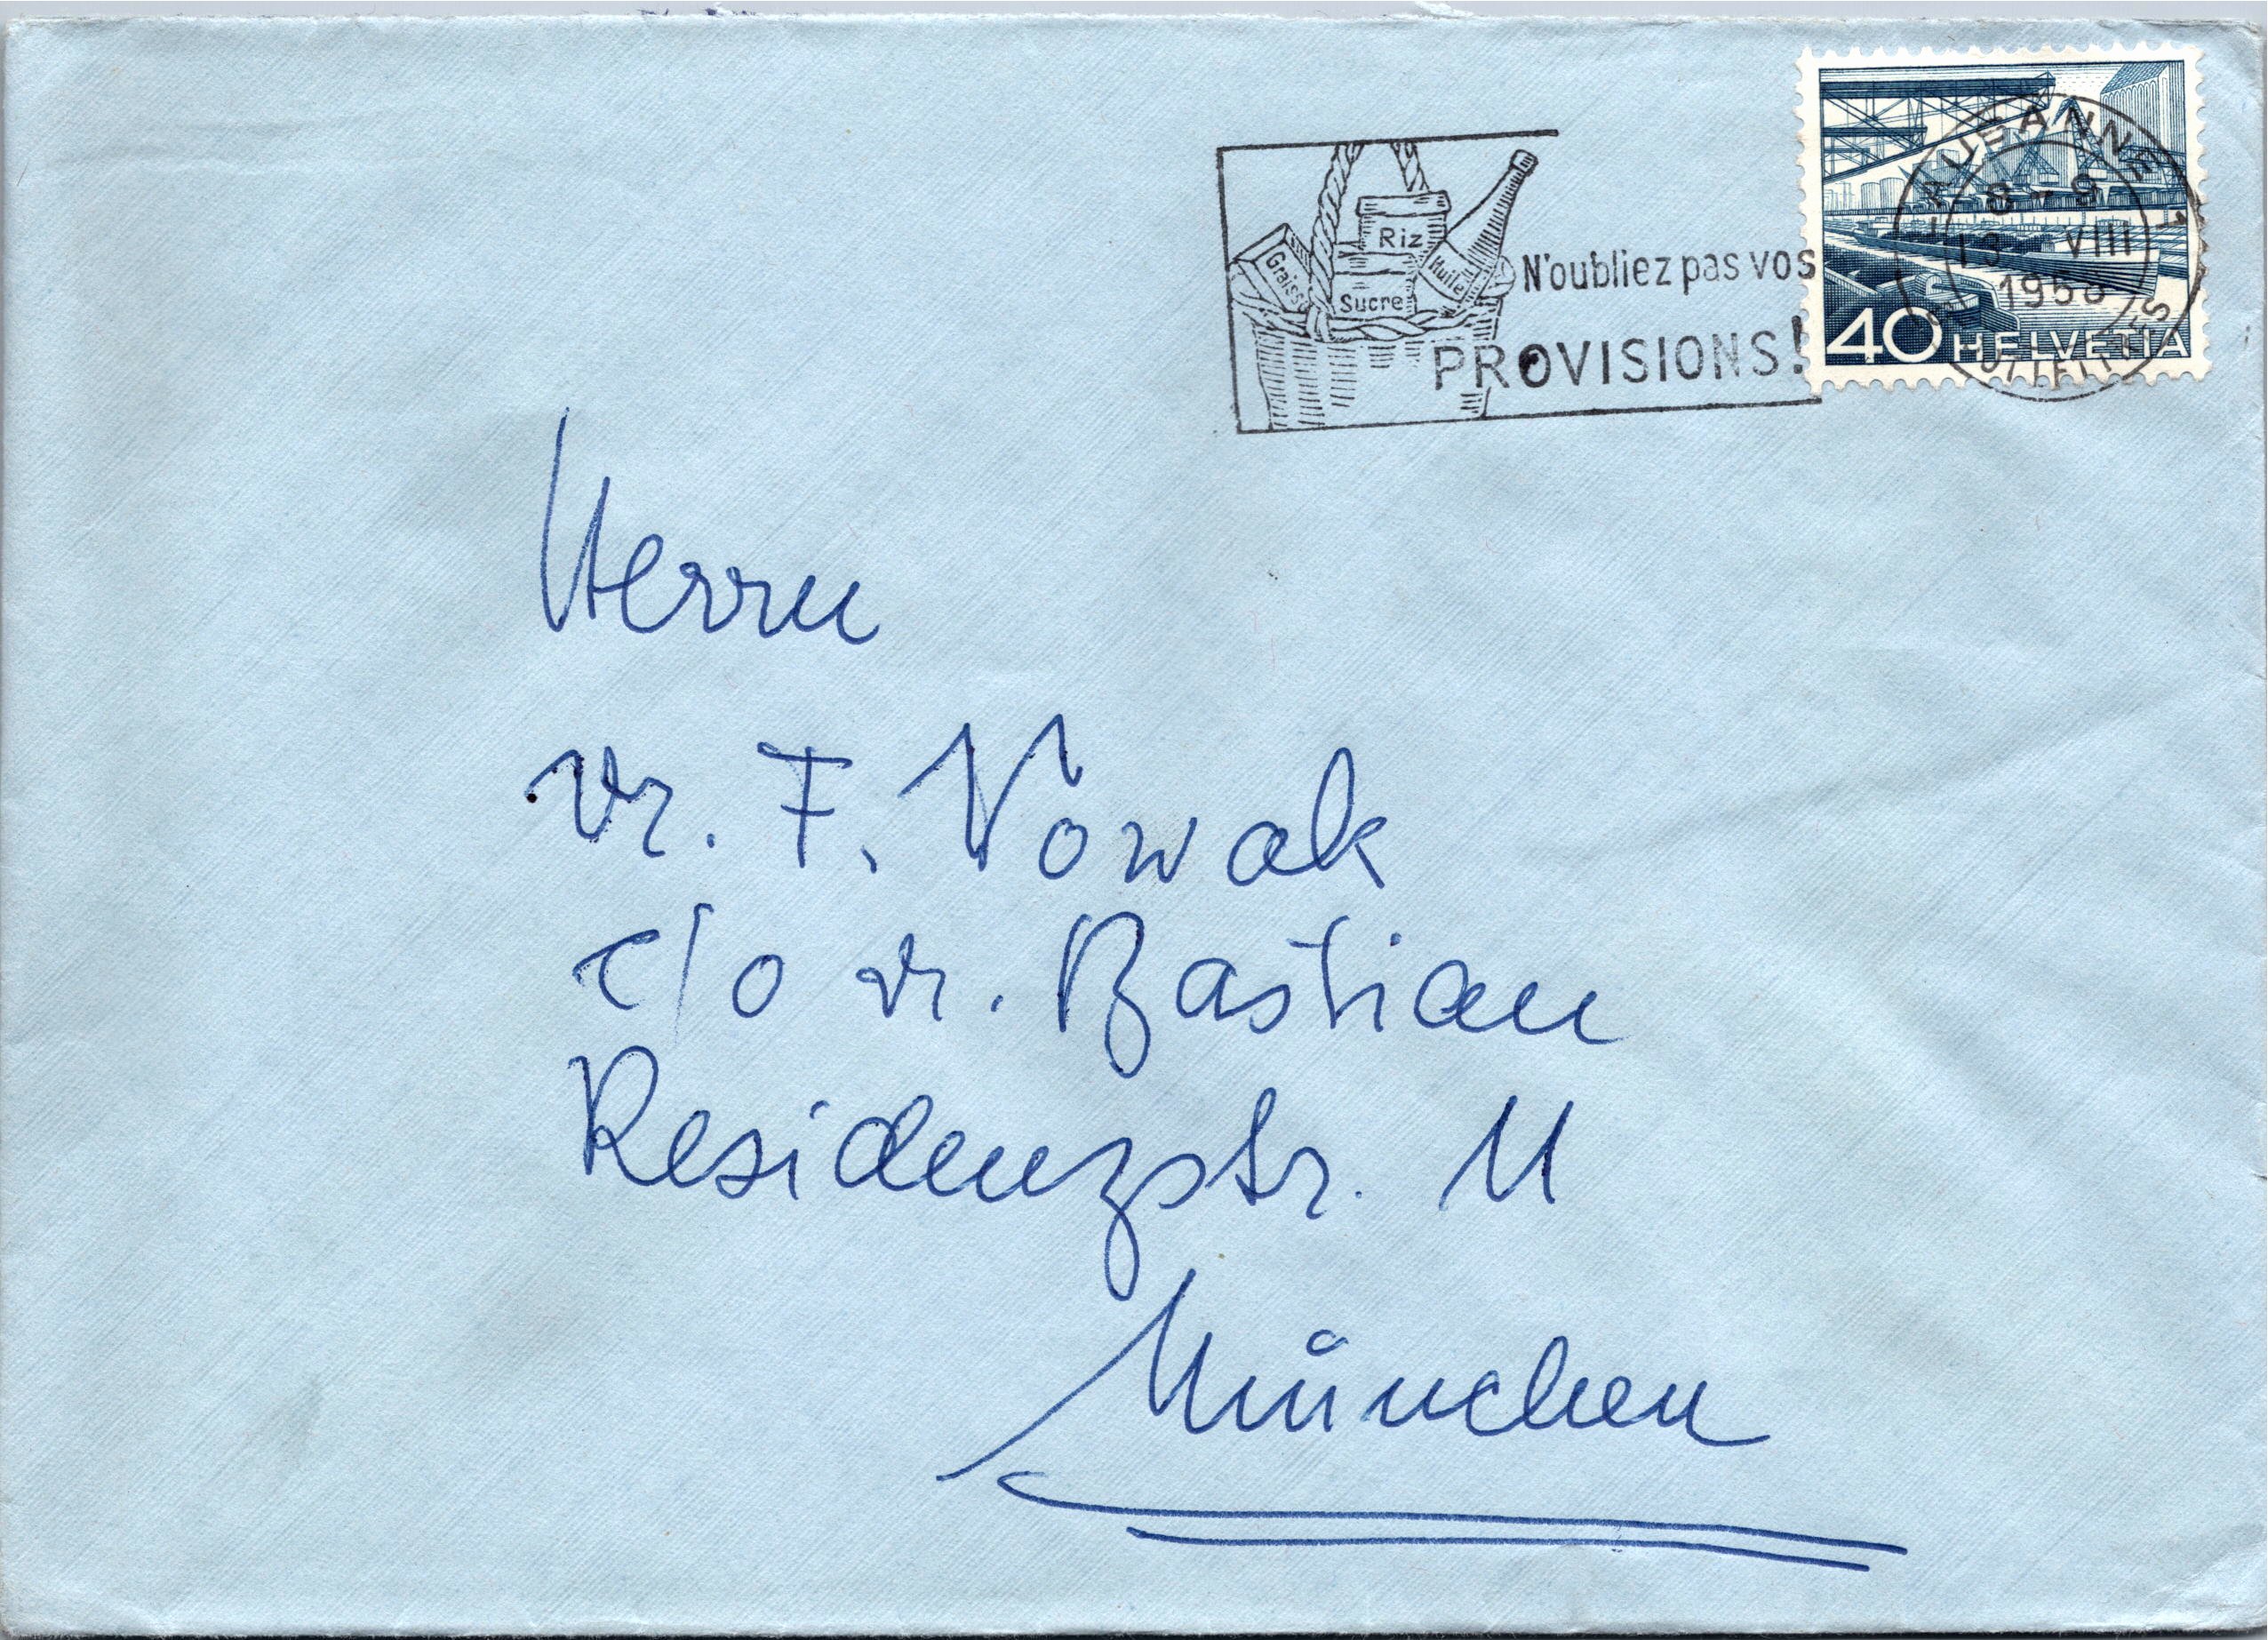 LAUSANNE 1
8-9
VIII
LETTRES
Graisse
Riz
Sucre
Huile
N'oubliez pas vos
PROVISIONS!
40 HELVETIA
Herrn
Dr. F. Nowak
c/o Dr. Bastian
Residenzstr. 11
München